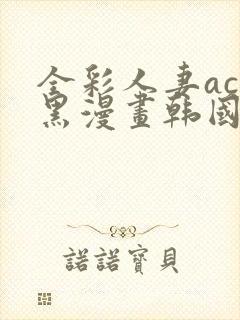 全彩人妻ac
黑漫畫韩國
諾諾寶貝